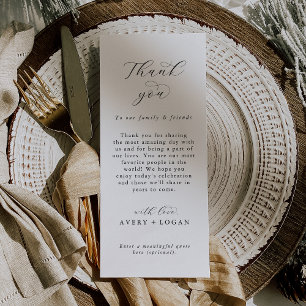 Thank
you
To our family & friends
Thank you for sharing
the most amazing day with
us and for being a part of
our lives. You are our most
favorite people in the
world! We hope you
enjoy today's celebration
and those we'll share in
years to come.
with love,
AVERY + LOGAN
Enter a meaningful quote
here (optional).